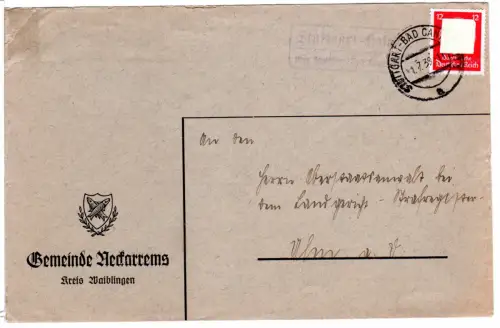 12 12
Deutsches Reich
STUTTGART-BAD CA
1.7.38
a
An den
Herrn Oberstaatsanwalt bei
dem Landgericht - Strafregister -
Ulm a. D.
Gemeinde Neckarrems
Kreis Waiblingen